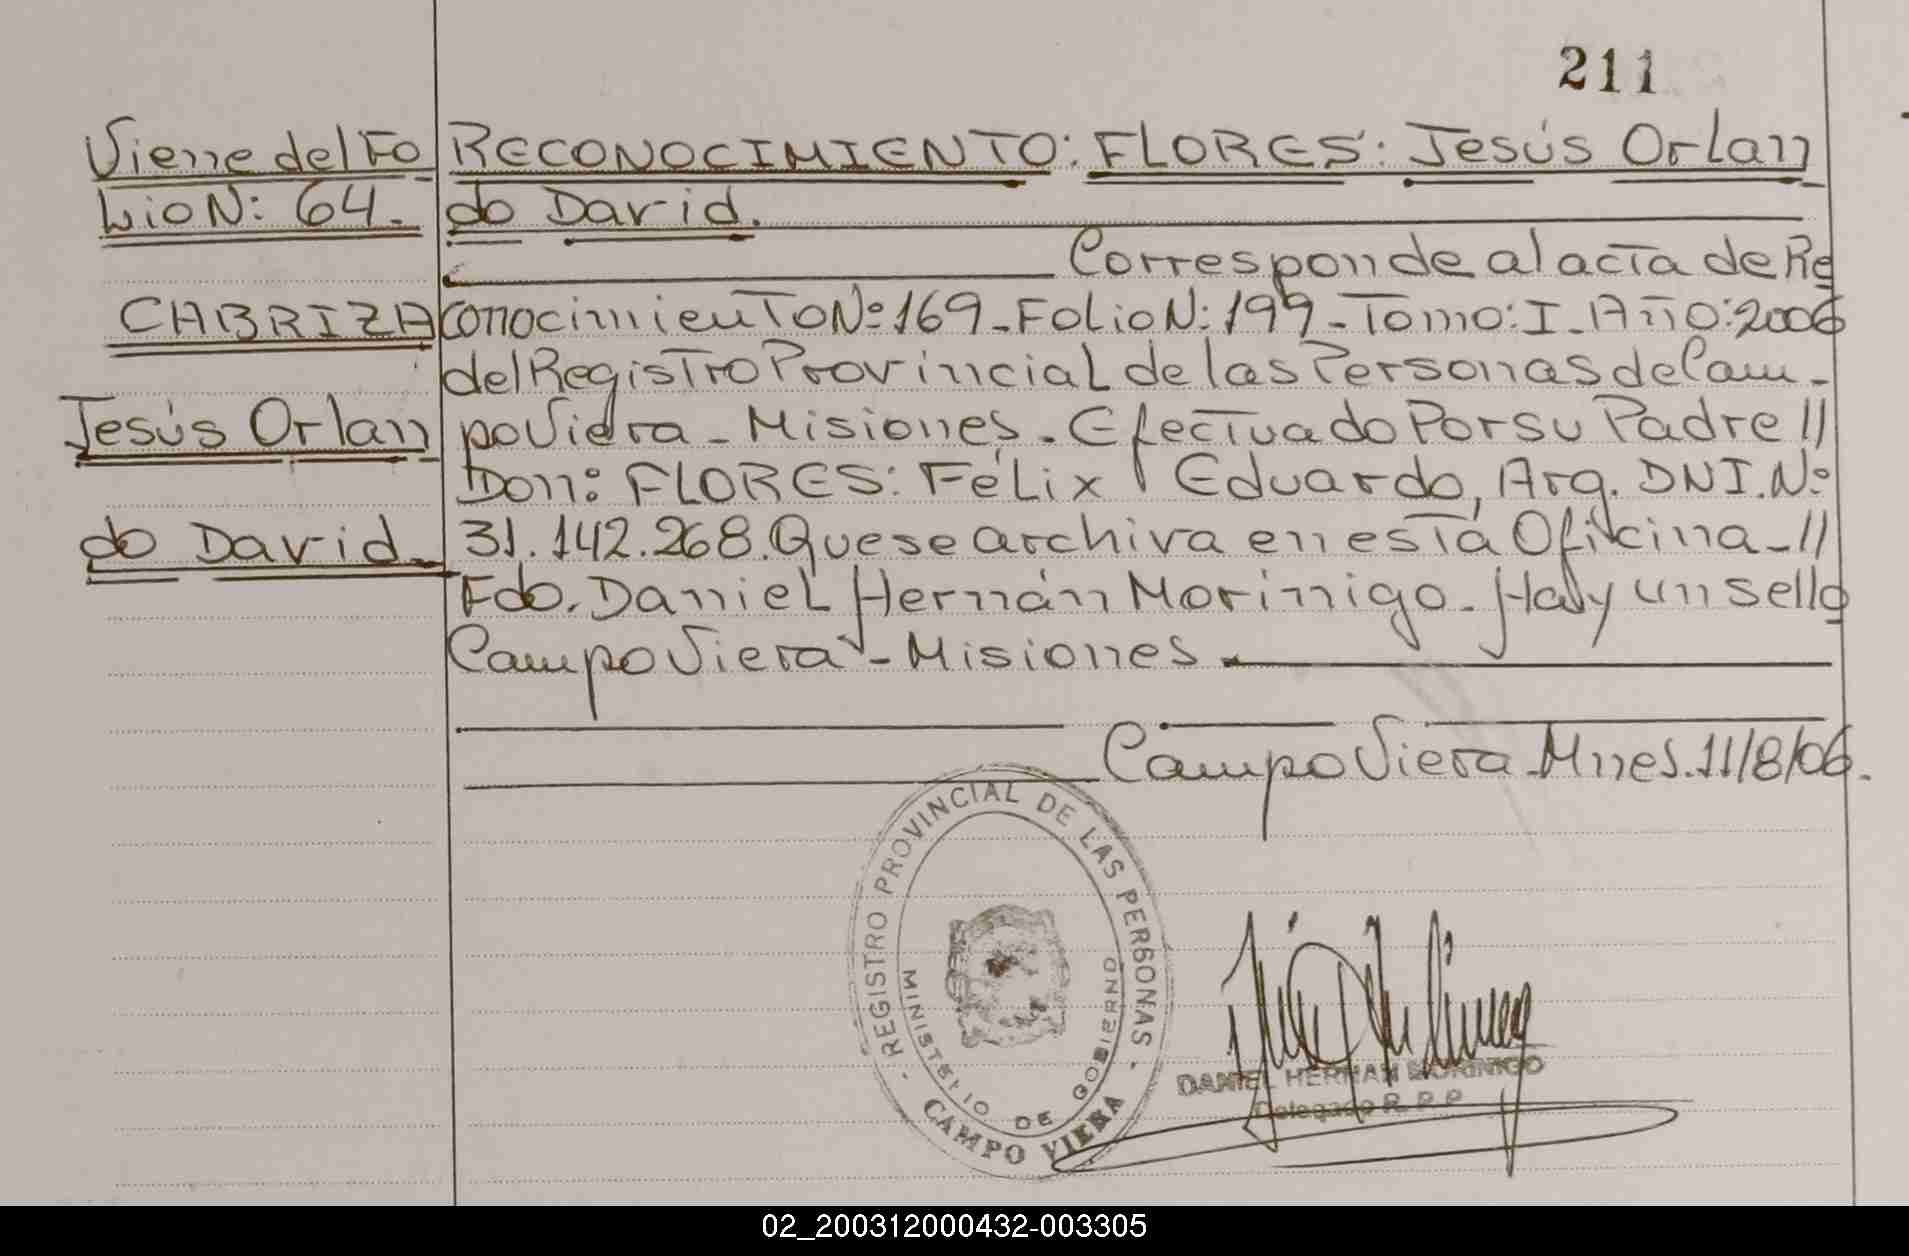 211
Viene del Fo
lio N: 64.
CABRIZA
Jesús Orlan
do David.
RECONOCIMIENTO: FLORES: Jesús Orlan
do David.
Corresponde al acta de Re
conocimiento Nº 169 - Folio N: 199 - Tomo: I - Año: 2006
del Registro Provincial de las Personas de Cam-
po Viera - Misiones. Efectuado Por su Padre //
Don: FLORES: Félix Eduardo, Arg. DNI. Nº
31.142.268. Que se archiva en está Oficina - //
Fdo. Daniel Hernán Morinigo. Hay un sello
Campo Viera - Misiones.
Campo Viera - Mnes. 11/8/06.
REGISTRO PROVINCIAL DE LAS PERSONAS
MINISTERIO DE GOBIERNO
CAMPO VIERA
DANIEL HERNAN MORINIGO
Delegado R. P. P.
02_200312000432-003305